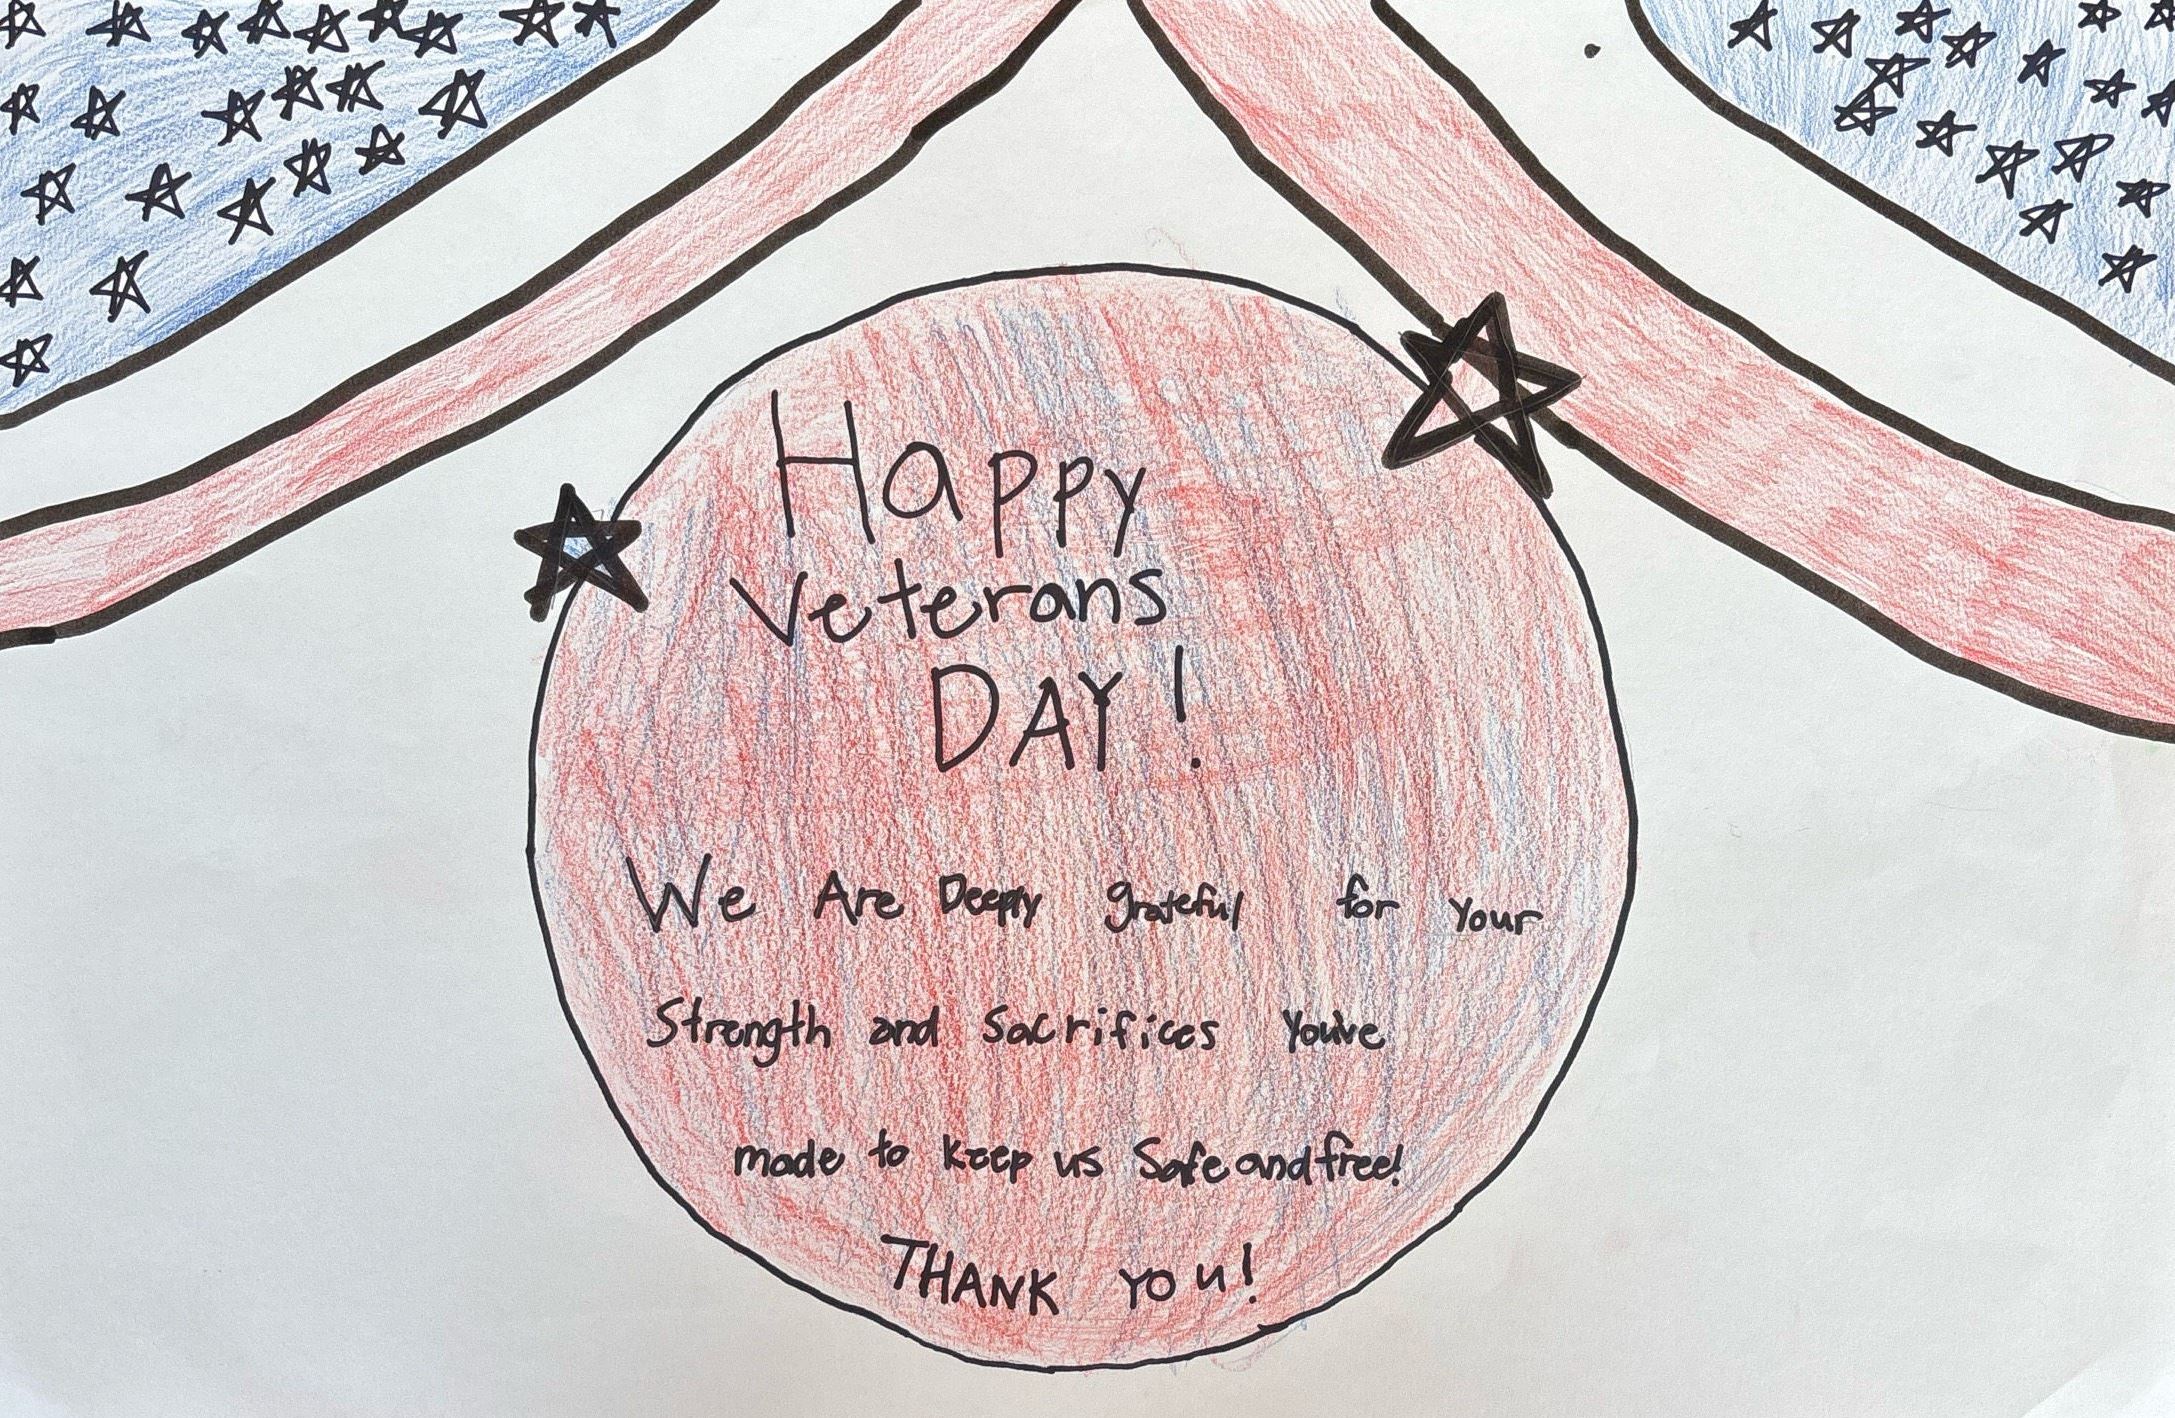 Happy
Veterans
DAY!
We Are Deeply grateful for your
Strength and Sacrifices You've
made to keep us Safe and free!
THANK YOU!